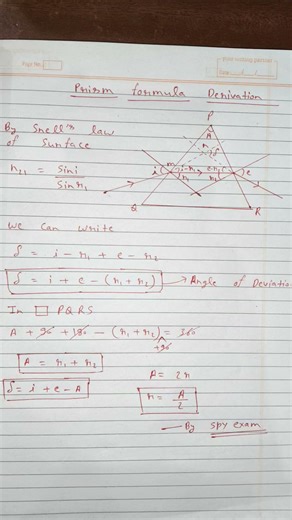 Page No.
Date
Prism formula Derivation
By Snell's law
of Surface
n₂₁ = Sini / Sinr₁
P
A
i
e
r₁
r₂
Q
R
we can write
δ = i - r₁ + e - r₂
δ = i + e - (r₁ + r₂) → Angle of Deviation
In □ PQRS
A + 90 + 180 - (r₁ + r₂) = 360
+90
A = r₁ + r₂
δ = i + e - A
A = 2r
r = A / 2
— By spy exam